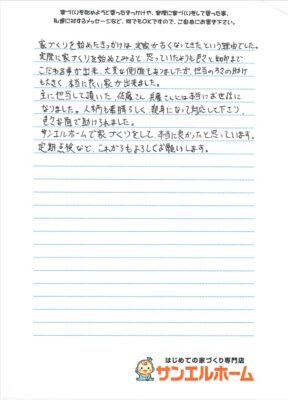 家づくりを始めようと思ったきっかけや、実際に家づくりをして思った事、
私達に対するメッセージなど、何でもOKですので、ご自由にお書き下さい。
家づくりを始めたきっかけは、実家が古くなってきたという理由でした。
実際に家づくりを始めてみると思っていたよりも色々と細部まで
こだわる事が出来、大変な側面もありましたが、担当の方の助け
も大きく、本当に良い家が出来ました。
主に担当して頂いた、佐藤さん、兵藤さんには本当にお世話に
なりました。人柄も素晴らしく、親身になって対応して下さり
色々な面で助けられました。
サンエルホームで家づくりをして、本当に良かったと思っています。
定期点検など、これからもよろしくお願いします。
はじめての家づくり専門店
サンエルホーム